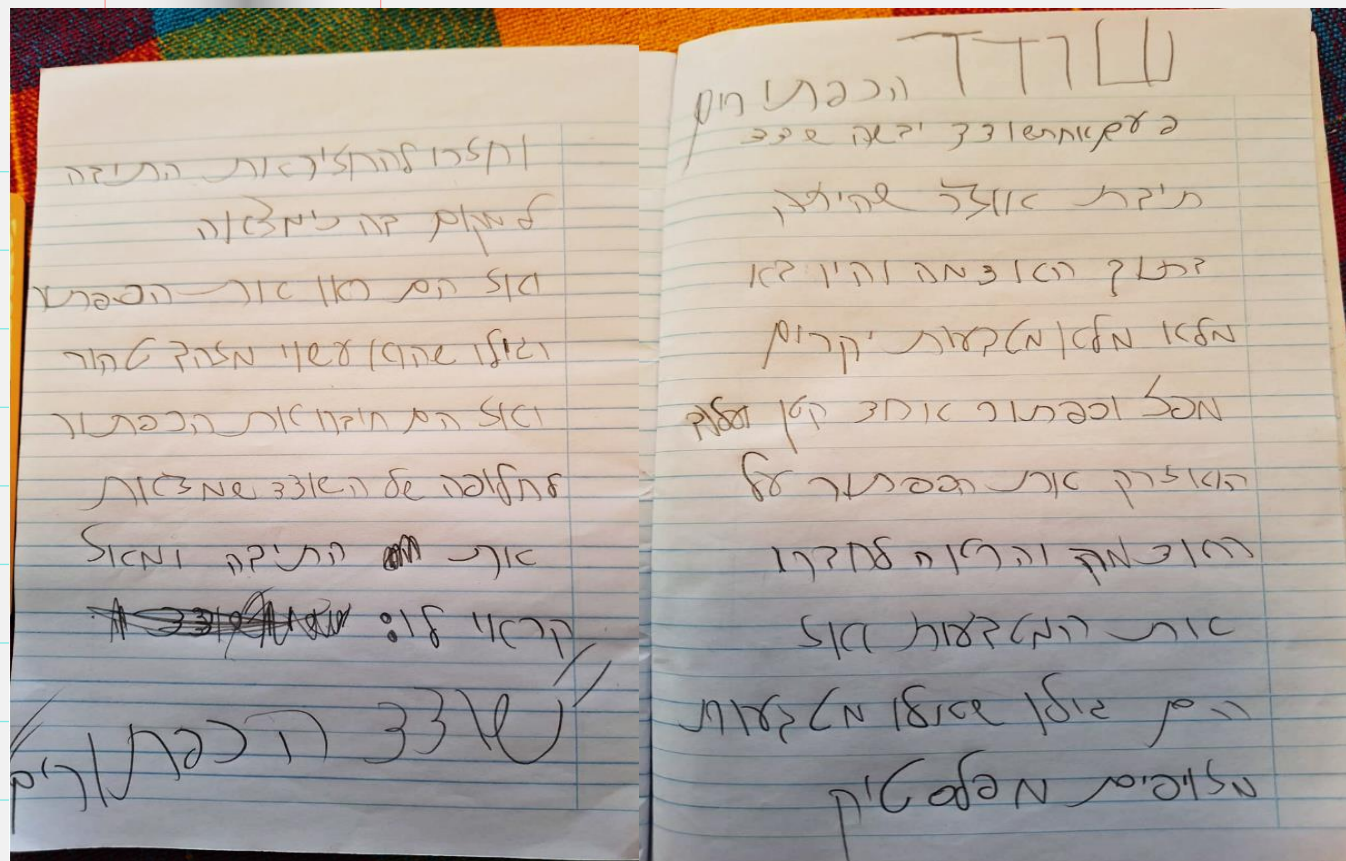 שודד
הכפתורים
פעם אחת שודד יבשה שדד
תיבת אוצר שהיתה
בתוך האדמה והיו בא
מלא מלא מטבעות יקרים
מפז וכפתור אחד קטן
הוא זרק את הכפתור על
והראה לחברו
את המטבעות ואז
הם גילו שאילו מטבעות
מזויפים מפלסטיק
וחזרו להחזיר את התיבה
למקום בה נימצאה
ואז הם ראו את הכפתור
וגילו שהוא עשוי מזהב טהור
ואז הם חיברו את הכפתור
לחליפה של השודד שמצאות
את התיבה ומאז
קראו לו:
"שודד הכפתורים"